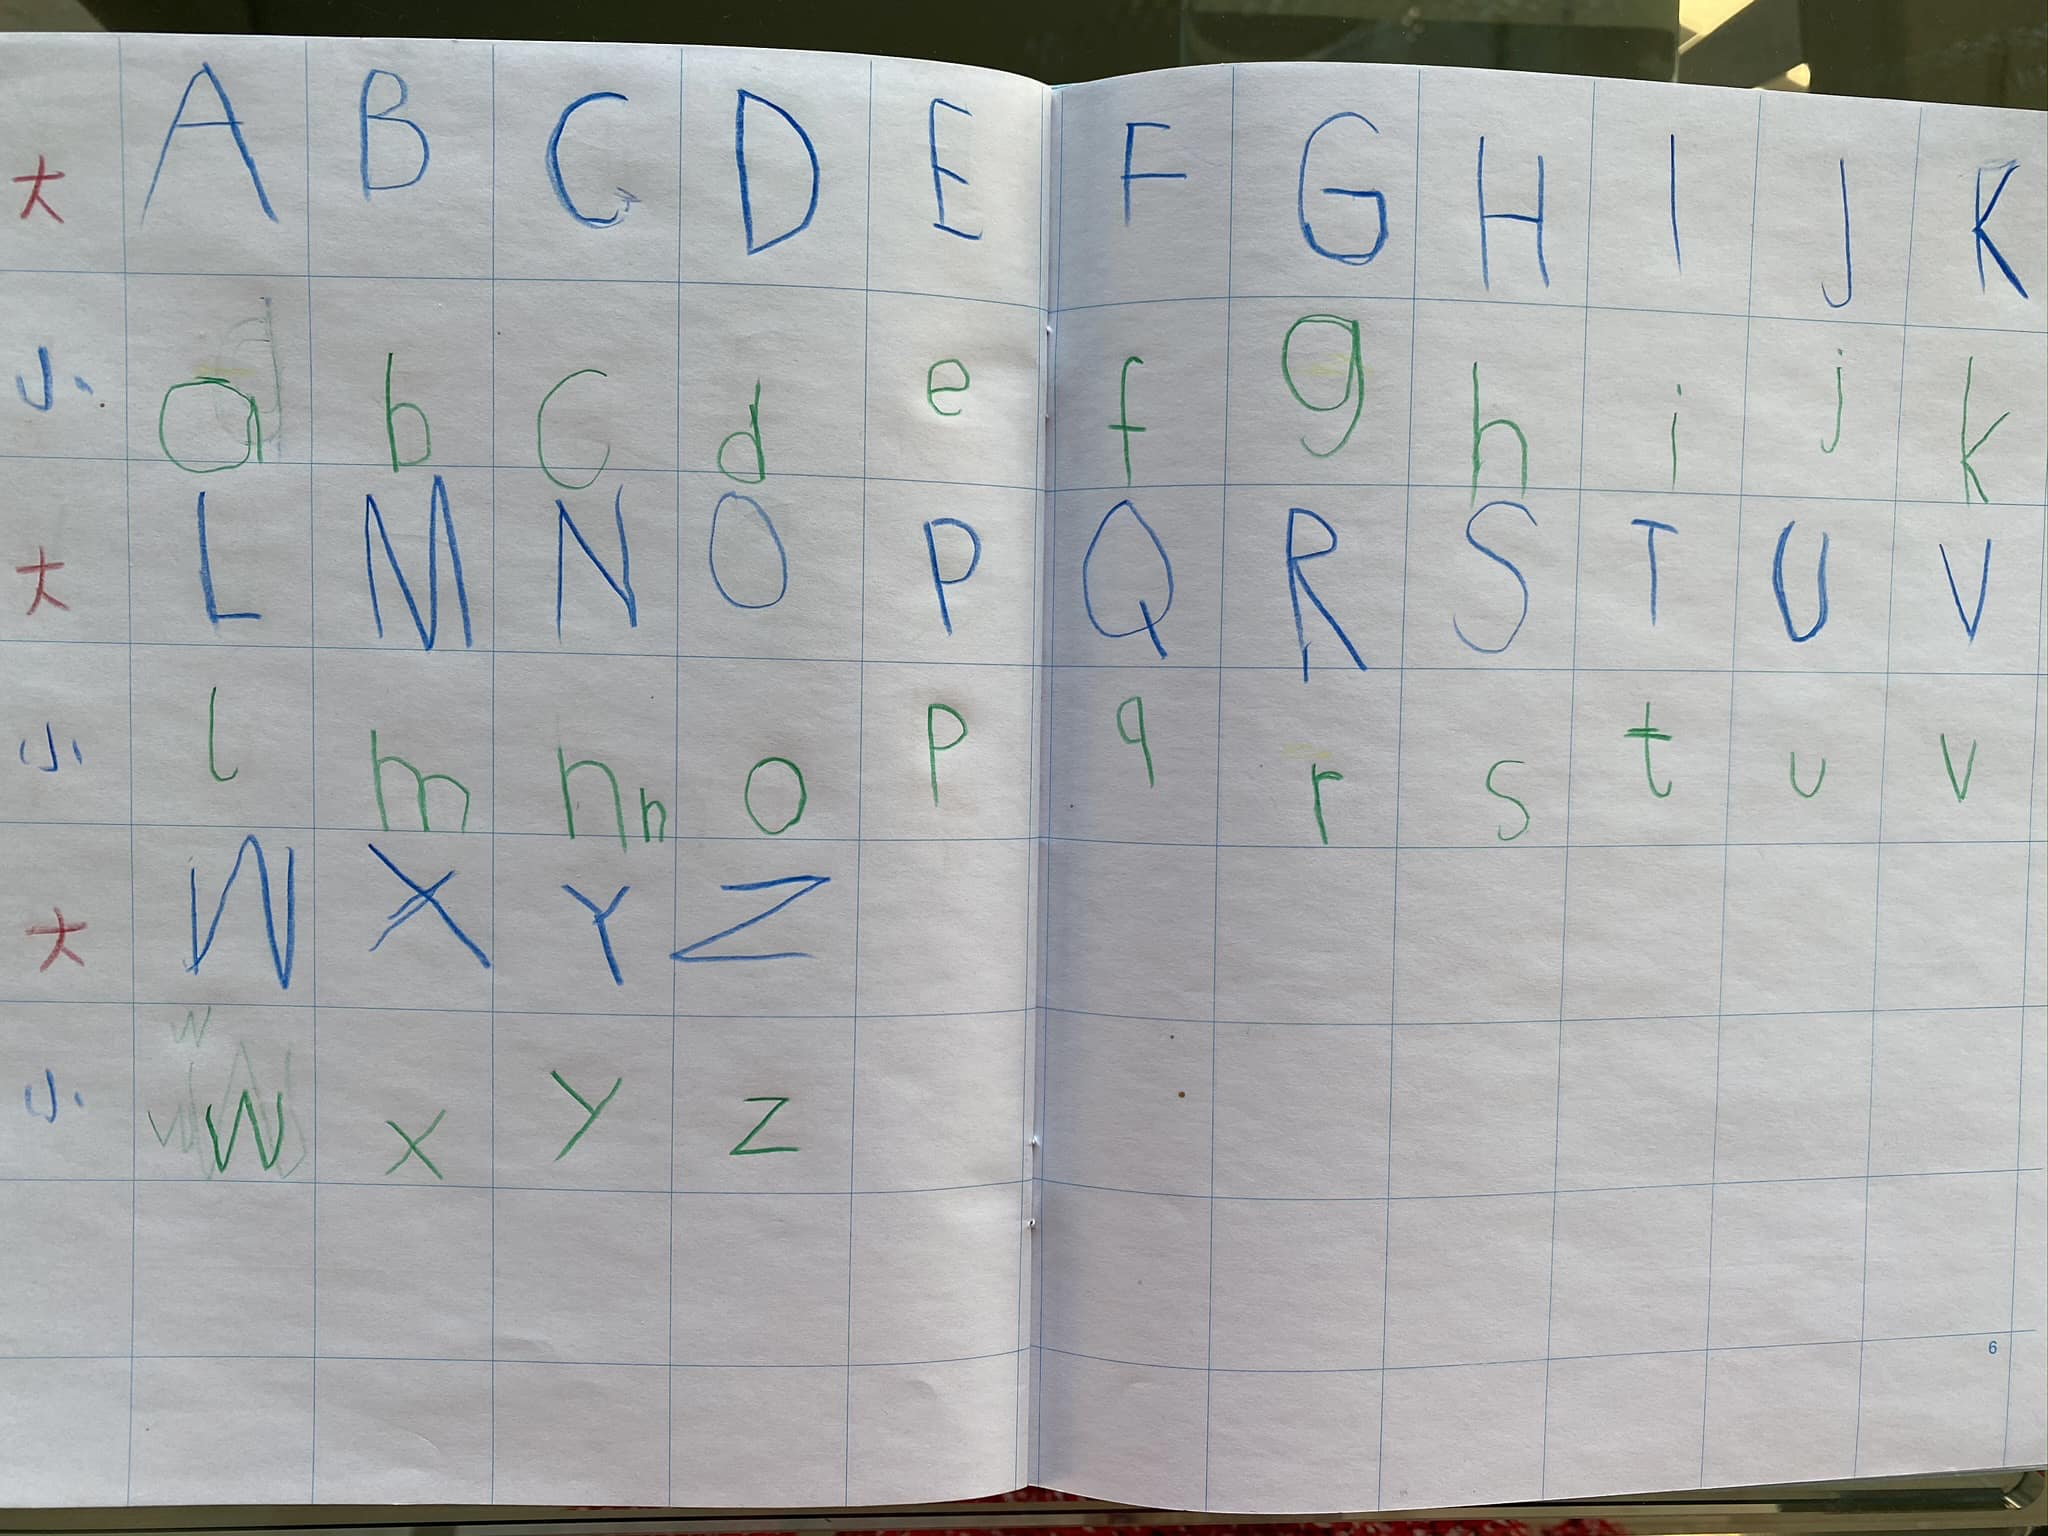 大 A B C D E F G H I J K
小 a b c d e f g h i j k
大 L M N O P Q R S T U V
小 l m n n o p q r s t u v
大 W X Y Z
小 w x y z
6